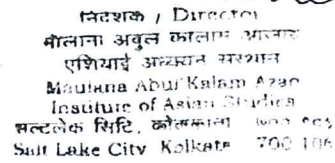 निदेशक / Director
मौलाना अबुल कलाम आजाद
एशियाई अध्ययन संस्थान
Maulana Abul Kalam Azad
Institute of Asian Studies
सल्टलेक सिटि, कोलकाता
Salt Lake City Kolkata 700 106